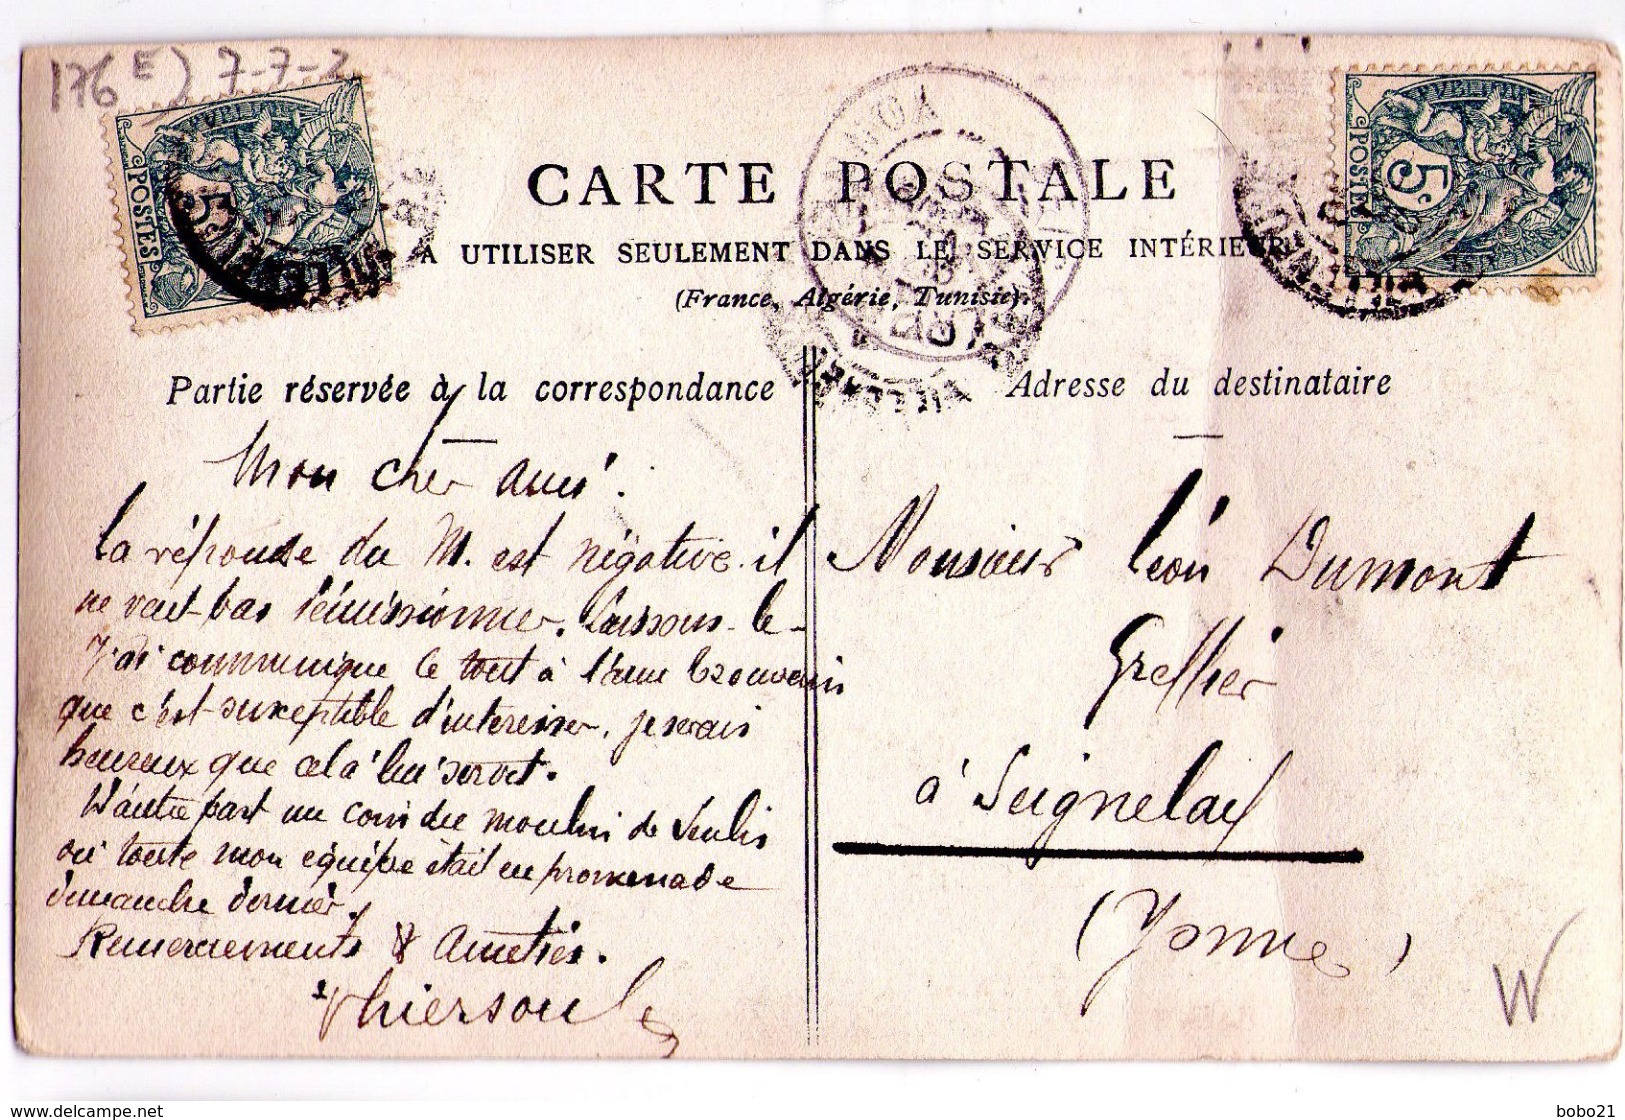 176 E) 7-7-2
CARTE POSTALE
A UTILISER SEULEMENT DANS LE SERVICE INTÉRIEUR
(France, Algérie, Tunisie)
POSTES 5c
POSTES 5c
Partie réservée à la correspondance
Mon cher ami.
La réponse du M. est négative. il
ne veut pas démissionner. Laissons-le-
J'ai communiqué le tout à l'ami
que c'est susceptible d'intéresser, je serais
heureux que cela lui servit.
D'autre part un coin du moulin de Senlis
où toute mon équipe était en promenade
dimanche dernier.
Remerciements & Amitiés.
Adresse du destinataire
Monsieur Léon Dumont
Grellier
à Seignelay
(Yonne)
W
delcampe.net
bobo21